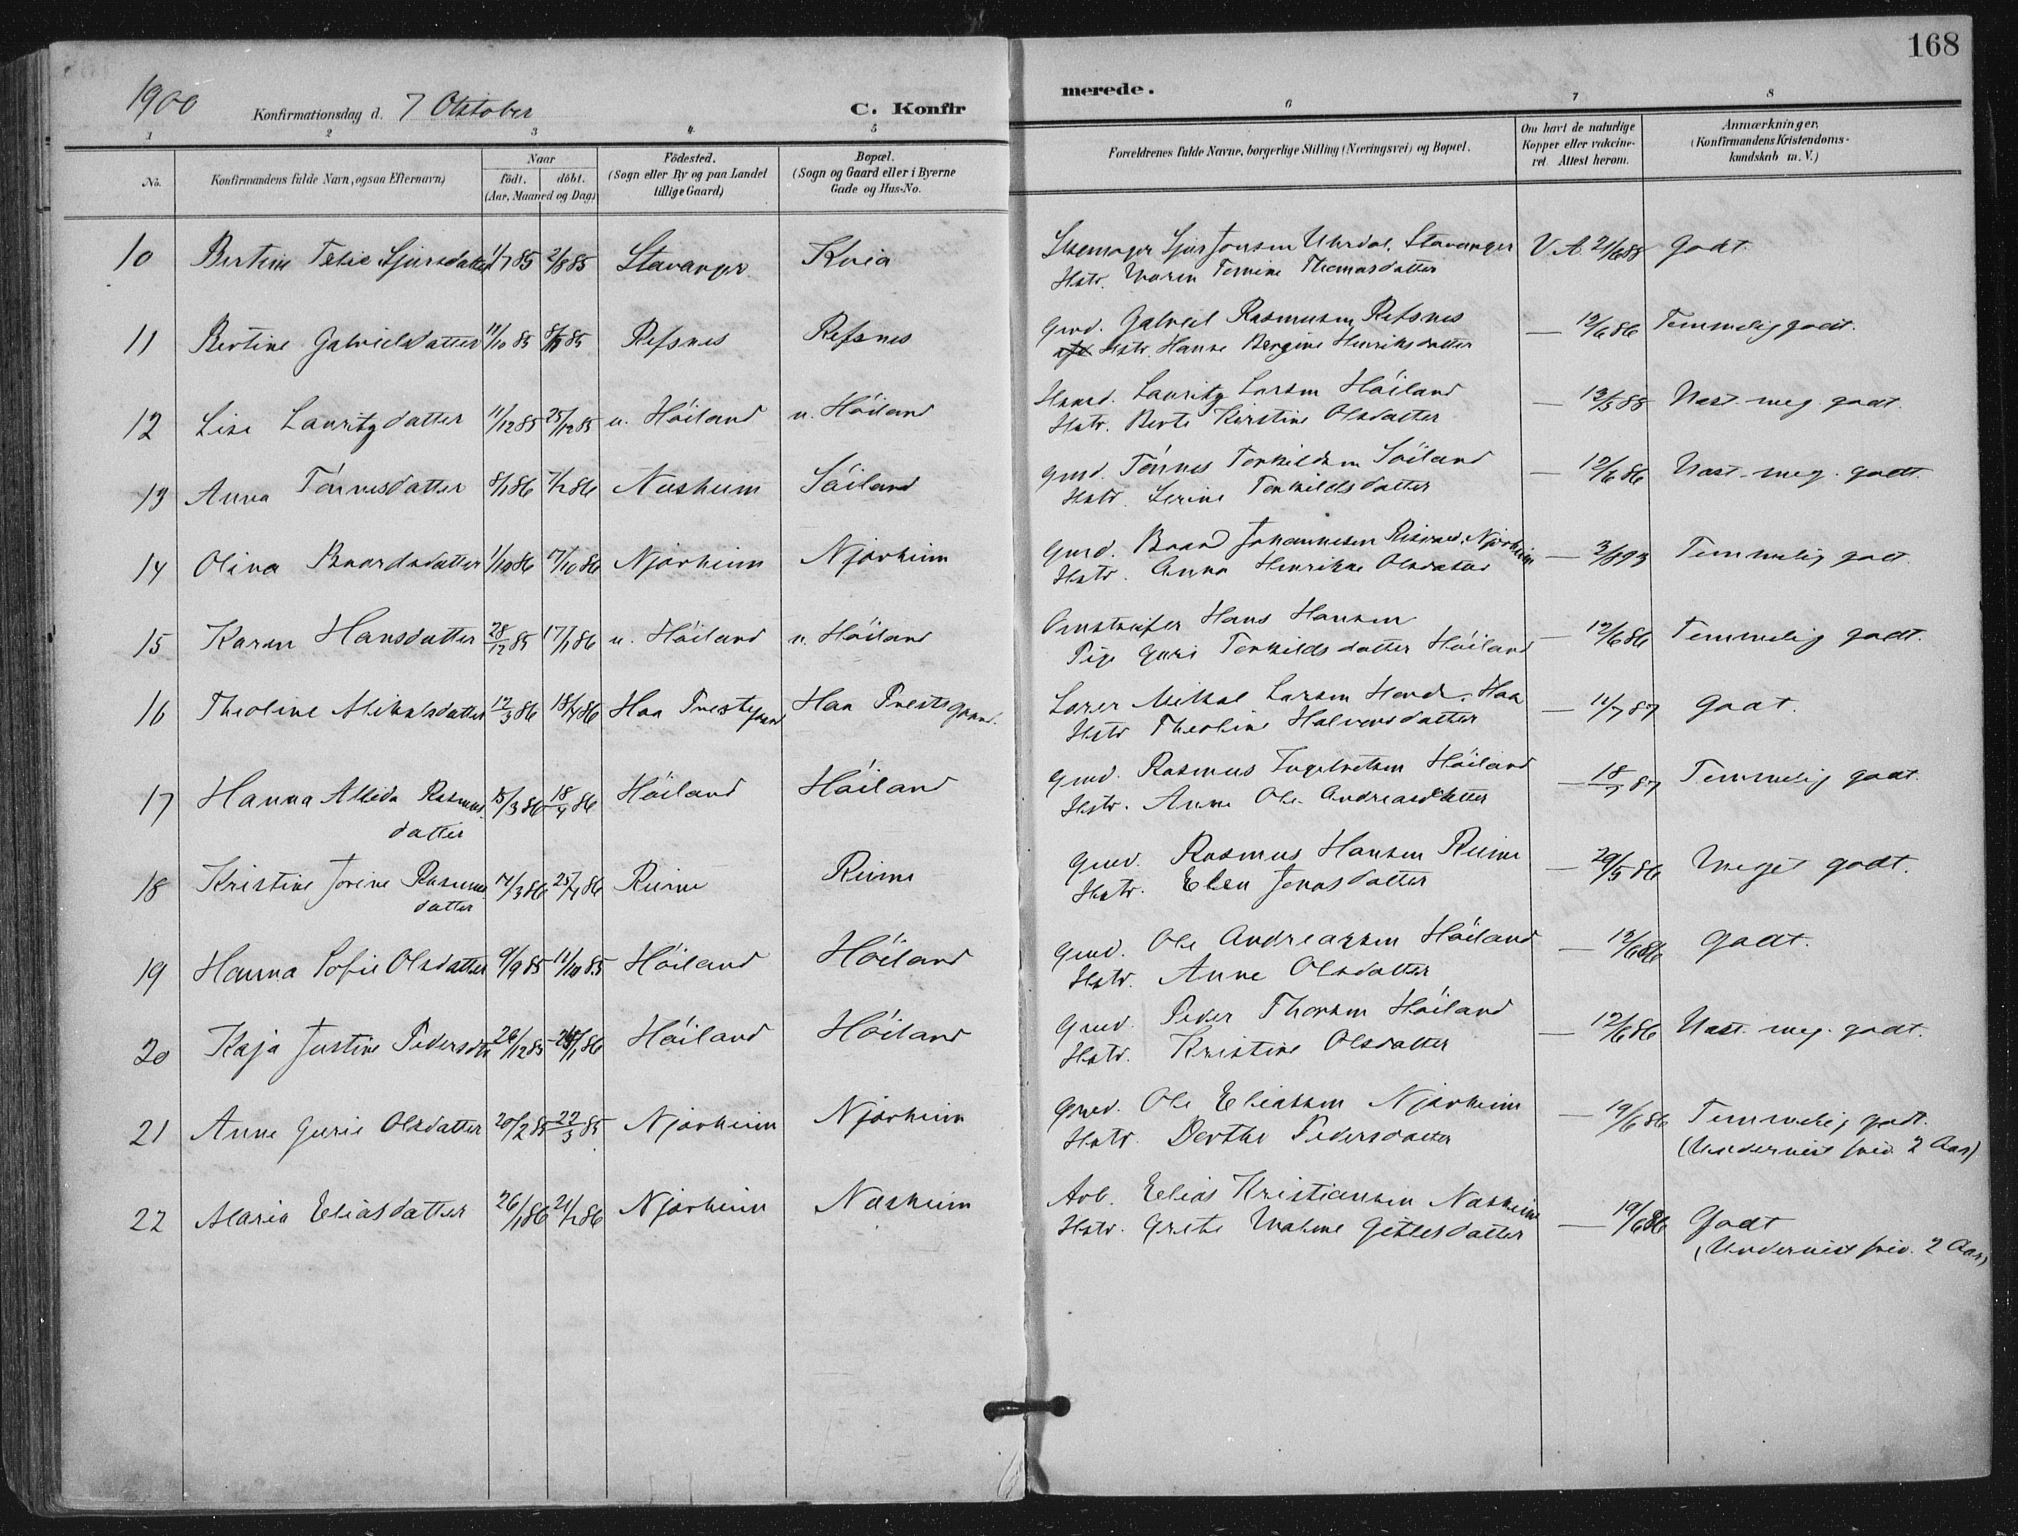 168
1900 Konfirmationsdag d. 7 Oktober C. Konfir merede.
1 2 3 4 5 6 7 8
No. Konfirmandens fulde Navn, ogsaa Efternavn) Naar födt. döbt. (Aar, Maaned og Dag) Födested. (Sogn eller By og paa Landet tillige Gaard) Bopæl. (Sogn og Gaard eller i Byerne Gade og Hus-No. Forældrenes fulde Navne, borgerlige Stilling (Næringsvei) og Bopæl. Om havt de naturlige Kopper eller vakcineret. Attest herom. Anmærkninger, (Konfirmandens Kristendomskundskab m. V.)
10 Bertine Sjursdatter 1/7 85 2/8 85 Stavanger Kvia Sjur Jonsen Stavanger V.A. 21/6 88 Godt.
Hstr. Maren Thomasdatter
11 Bertine Gabrielsdatter 11/10 85 85 Refsnes Refsnes Grd. Gabriel Rasmusen Refsnes — 12/6 86 Temmelig godt.
Hstr. Hanne Bergine Henriksdatter
12 Lise Lauritzdatter 11/12 85 25/12 85 u. Höiland u. Höiland Lauritz Larsen Höiland — 88 Næst. meg. godt.
Hstr. Berte Kirstine Olsdatter
13 Anna Tönnesdatter 8/1 86 7/2 86 Næsheim Söiland Gmd. Tönnes Torkildsen Söiland — 12/6 86 Næst. meg. godt.
Hstr. Serine Torkildsdatter
14 Olina Baardsdatter 1/10 86 17/10 86 Njærheim Njærheim Gmd. Baard Johannesen Njærheim — Temmelig godt.
Hstr. Anna Henrikke Olsdatter
15 Karen Hansdatter 28/12 85 17/1 86 u. Höiland u. Höiland Hans Hansen — 12/6 86 Temmelig godt.
Pige Guri Torkildsdatter Höiland
16 Theoline Mikalsdatter 12/3 86 18/4 86 Haa Prestegaard Haa Prestegaard. Mikal Larsen Haa — 11/7 87 Godt.
Hstr. Theoline Halvorsdatter
17 Hanna Alida Rasmus 15/3 86 18/4 86 Höiland Höiland Gmd. Rasmus Ingebretsen Höiland — 18/7 87 Temmelig godt.
datter Hstr. Anne Ols Andreasdatter
18 Kristine Jorine Rasmus 14/3 86 25/4 86 Reime Reime Gmd. Rasmus Hansen Reime — 29/5 86 Meget godt.
datter Hstr. Elen Jonasdatter
19 Hanna Sofie Olsdatter 9/9 85 11/10 85 Höiland Höiland Gmd. Ole Andreassen Höiland — 12/6 86 Godt.
Hstr. Anne Olsdatter
20 Kaja Justine Pedersdtr 26/12 85 86 Höiland Höiland Gmd. Peder Thorsen Höiland — 12/6 86 Næst. meg. godt.
Hstr. Kristine Olsdatter
21 Anne Gurie Olsdatter 20/2 85 22/3 85 Njærheim Njærheim Gmd. Ole Eliassen Njærheim — 19/6 86 Temmelig godt.
Hstr. Berthe Pedersdatter (Undervist priv. 2 Aar)
22 Maria Eliasdatter 26/1 86 21/2 86 Njærheim Næsheim Arb. Elias Kristiansen Næsheim — 19/6 86 Godt
Hstr. Grete Malene Gitlesdatter (Undervist priv. 2 Aar)